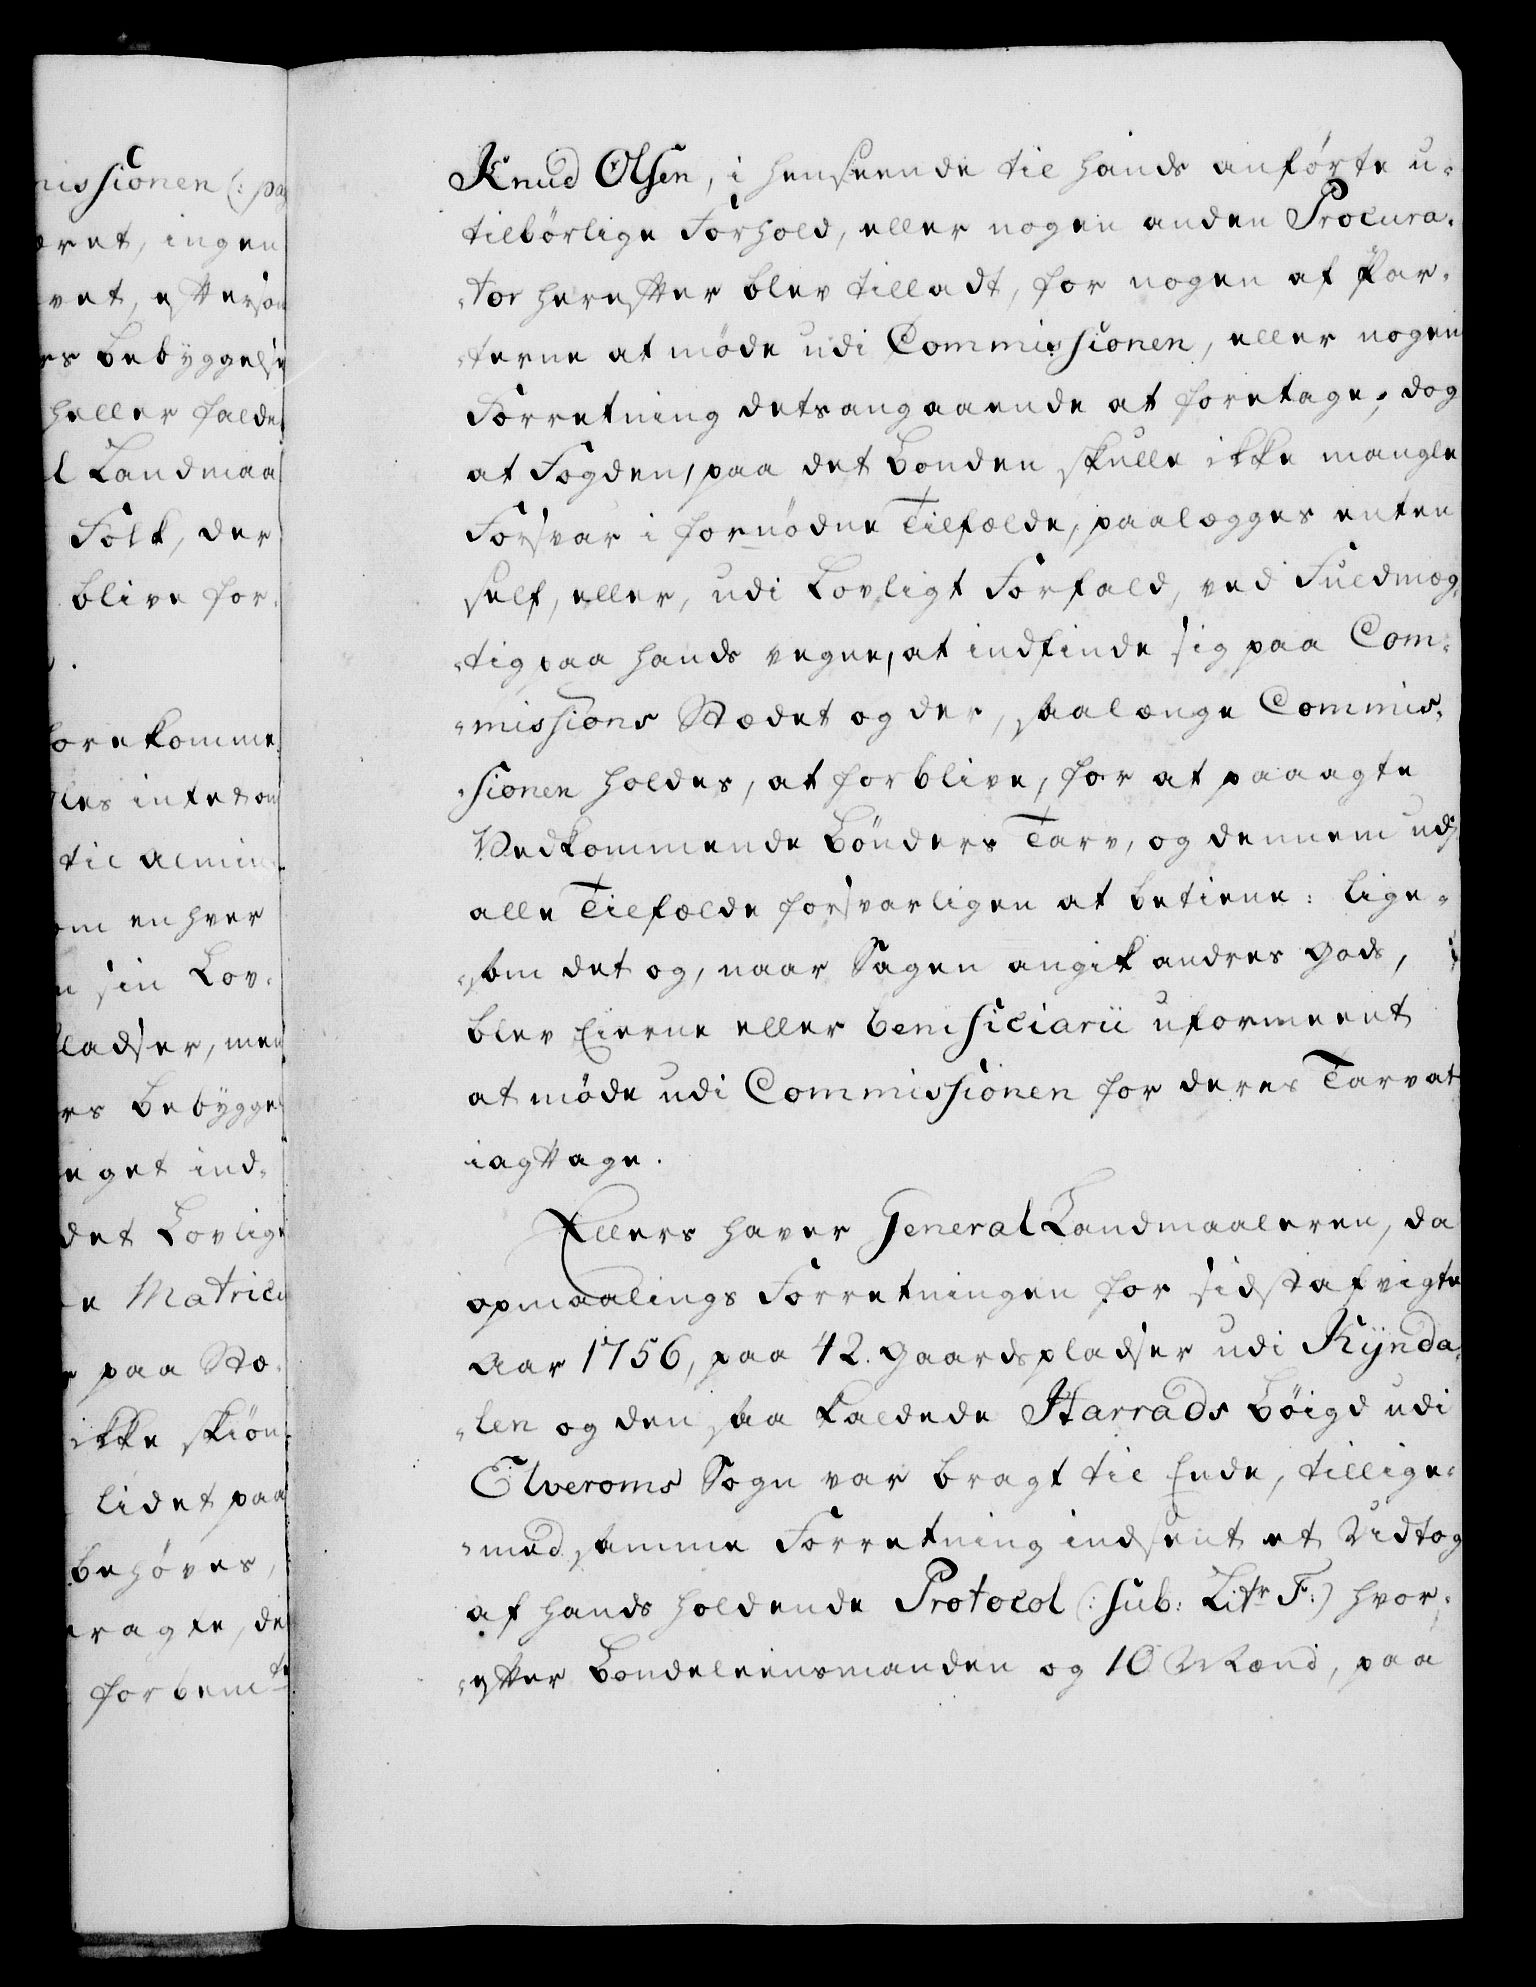 missionen (: paa
æret, ingen
vet, efterson
rs bebyggelse
heller falde
l Landmaa
Folk, der
blive for-
forekomme
gles intet om
til almin
om enhver
n sin Lov-
ladser, men
rs bebygge
eget ind-
det Lovlige
e Matricu
paa Stæ-
ikke skiøn-
lidet paa
behøves,
ragte, de
forbemte
Knud Olsen, i henseende til hands anførte u-
tilbørlige Forhold, eller nogen anden Procura-
-tor herefter blev tilladt, for nogen af Par-
-terne at møde udi Commissionen, eller nogen
Forretning detsangaaende at foretage; dog
at Fogden, paa det Bonden skulle ikke mangle
Forsvar i fornødne Tilfælde, paalægges enten
self, eller, udi Lovligt Forfald, ved Fuldmæg-
-tig paa hands vegne, at indfinde sig paa Com-
-missions Stædet og der, saalænge Commis-
-sionen holdes, at forblive, for at paaagte
Vedkommende Bønders Tarv, og dennem udj
alle Tilfælde forsvarligen at betiene: lige-
-som det og, naar Sagen angik andres Gods,
blev Eierne eller beneficiarii uformeent
at møde udi Commissionen for deres Tarv at
iagttage.
Ellers haver General Landmaaleren, da
opmaalings Forretningen for sidst afvigte
Aar 1756, paa 42. Gaardspladser udi Rÿnda-
-len og den saa kaldede Harrads Bøigd udi
Elveroms Sogn var bragt til Ende, tillige-
-med samme Forretning indsent et Udtog
af hands holdende Protocol (: sub: Litr F:) hvor-
-efter Bondeleensmanden og 10 Mænd, paa